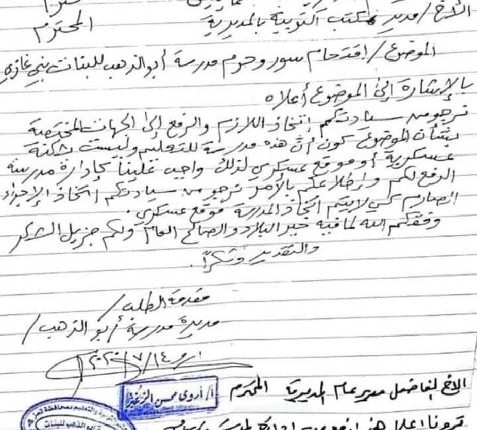 الأخ/ مدير مكتب التربية بالمديرية المحترم
الموضوع/ اقتحام سور وحرم مدرسة أبو الذهب للبنات بني غازي
بالإشارة إلى الموضوع أعلاه
نرجو من سيادتكم اتخاذ اللازم والرفع إلى الجهات المختصة
بشأن الموضوع كون أن هذه مدرسة للتعليم وليست ثكنة
عسكرية أو موقع عسكري لذلك واجب علينا كإدارة مدرسة
الرفع لكم وإطلاعكم بالأمر نرجو من سيادتكم اتخاذ الإجراء
الصارم كي لا يتم اتخاذ المدرسة موقع عسكري.
وفقكم الله لما فيه خير البلاد والصالح العام ولكم جزيل الشكر
والتقدير وشكراً.
مقدمة الطلب/
مديرة مدرسة/ أبو الذهب/
٢٠٢٠/٧/١٤
أ/ أروى محسن
الأخ الفاضل مدير عام المديرية المحترم